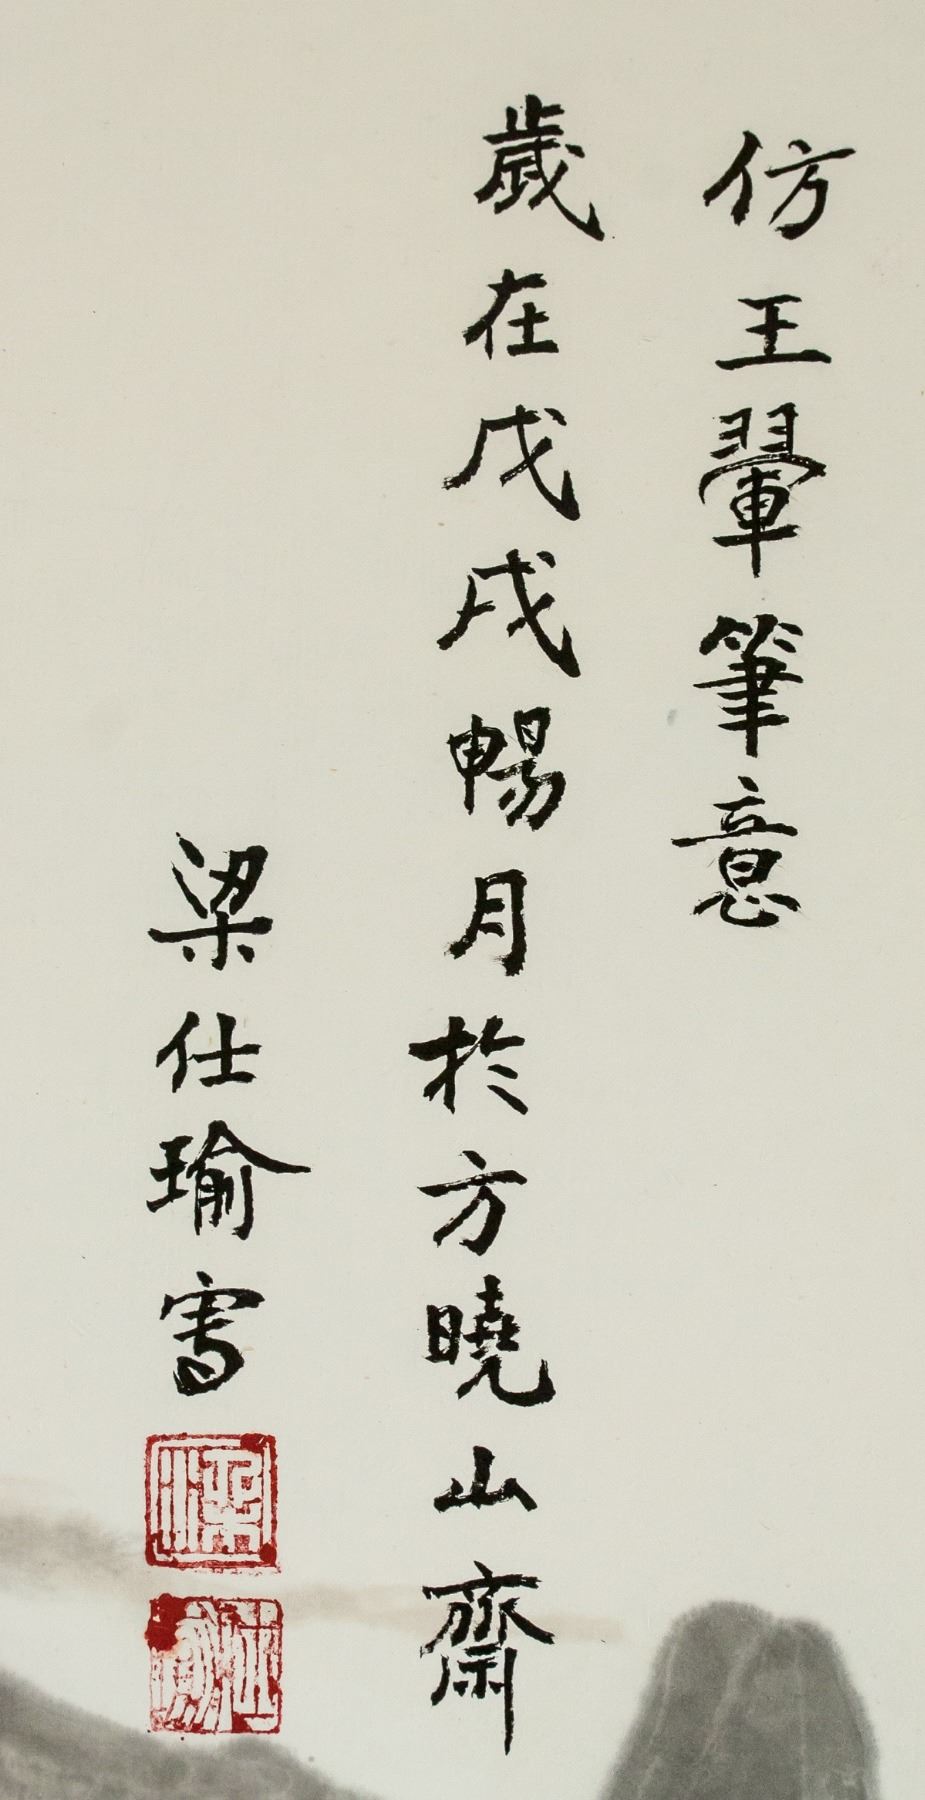 仿王翬筆意
歲在戊戌暢月於方曉山齋
梁仕瑜寫